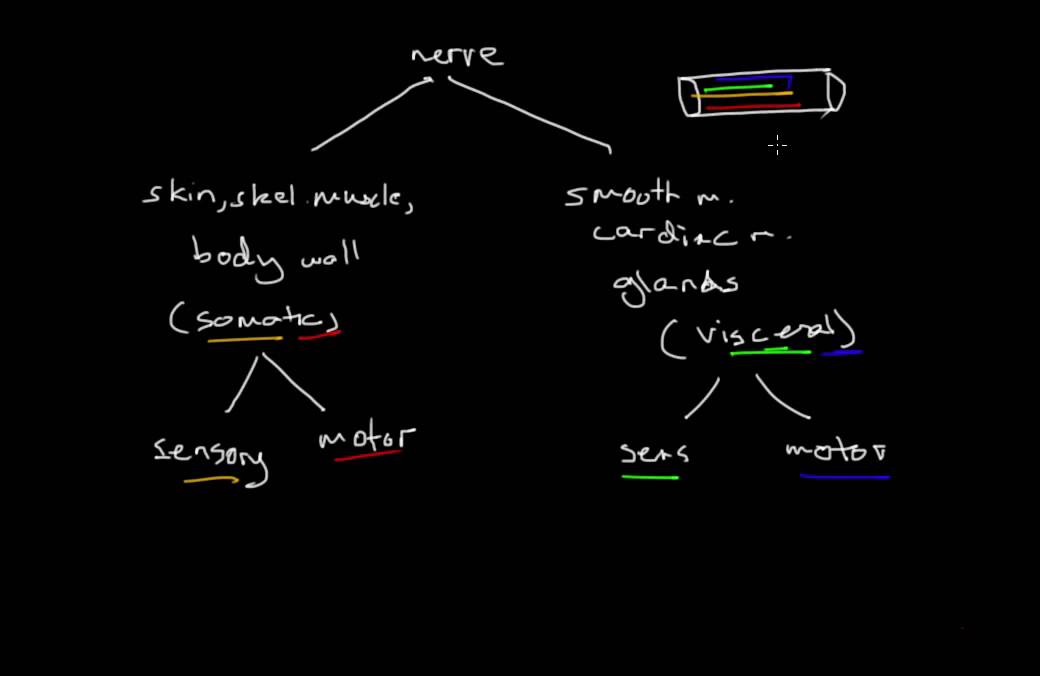 nerve
skin, skel. muscle,
body wall
(somatic)
sensory
motor
smooth m.
cardiac m.
glands
(visceral)
sens
motor